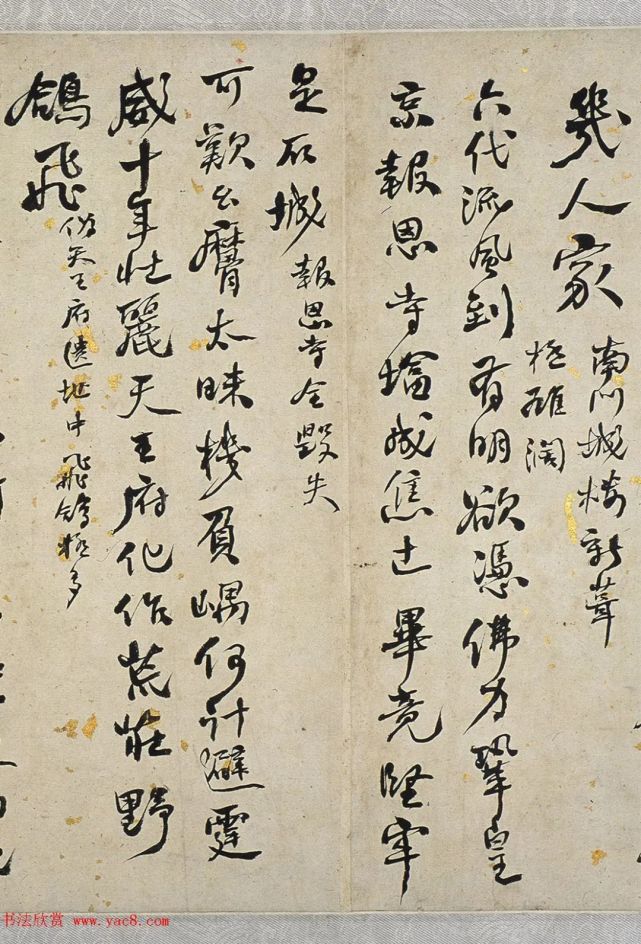 幾人家 南門城樓新葺
極雄闊
六代流風到有明欲憑佛力鞏皇
京報恩寺塔成焦土畢竟堅牢
是石城 報恩寺全毀矣
可歎么麼太昧機負嵎何計避霆
威十年壯麗天王府化作荒莊野
鴿飛 偽天王府遺址中飛鴿極多
书法欣赏 www.yac8.com